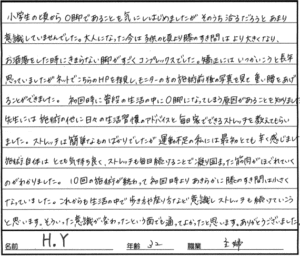 小学生の頃からO脚であることも気にしはじめましたが そのうち治るだろうと あまり
意識していませんでした。大人になった今は 子供の頃より膝のすき間は より大きくなり、
お洒落をした時にきまらない脚がすごくコンプレックスでした。矯正には いつかいこうと長年
思っていましたが ネットでこちらのHPを拝見し、モニターの方の施術前後の写真を見て 重い腰をあげ
ることができました。 初回時に普段の生活の中にO脚になってしまう原因があることを知りました
先生には 施術の他に 日々の生活習慣のアドバイスと 毎日家でできるストレッチを教えてもらい
ました。ストレッチは簡単なものばかりでしたが 運動不足の私には最初とても辛く感じました
施術自体は とても気持ち良く、ストレッチも毎日続けることで凝り固まった筋肉がほぐれていく
のがわかりました。 10回の施術が終わって 初回時よりあきらかに膝のすき間は小さく
なっていました。これからも生活の中で歩き方や座り方など意識しストレッチも続けていこう
と思います。そういった意識が変わったという面でも通ってよかったと思います。ありがとうございました
名前 H.Y 年齢 32 職業 主婦